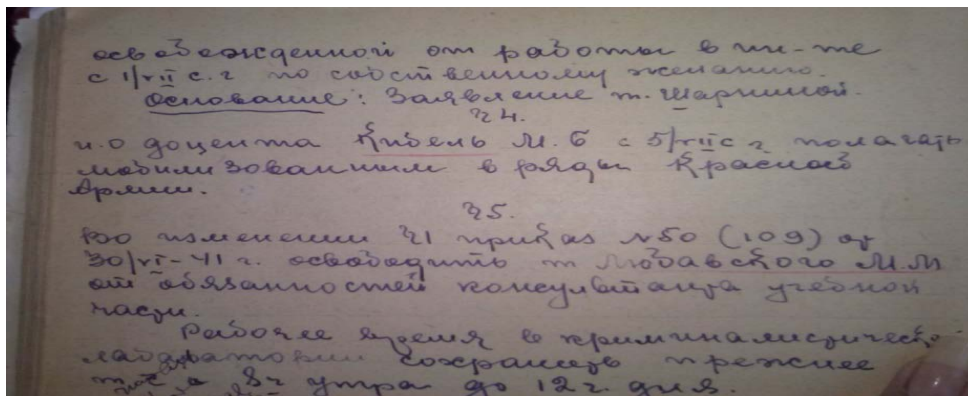 освобожденной от работы в ин-те
с 1/VII с.г по собственному желанию.
Основание: Заявление т. Шаргиной.
§ 4.
и.о доцента Кибель М.Б с 5/VII с г полагать
мобилизованным в ряды Красной
Армии.
§ 5.
Во изменении §1 приказ №50 (109) от
30/VI-41 г. освободить т Любавского М.М
от обязанностей консультанта учебной
части.
Рабочее время в криминалистическо
лаборатории сохранить прежнее
8ч утра до 12 г. дня.